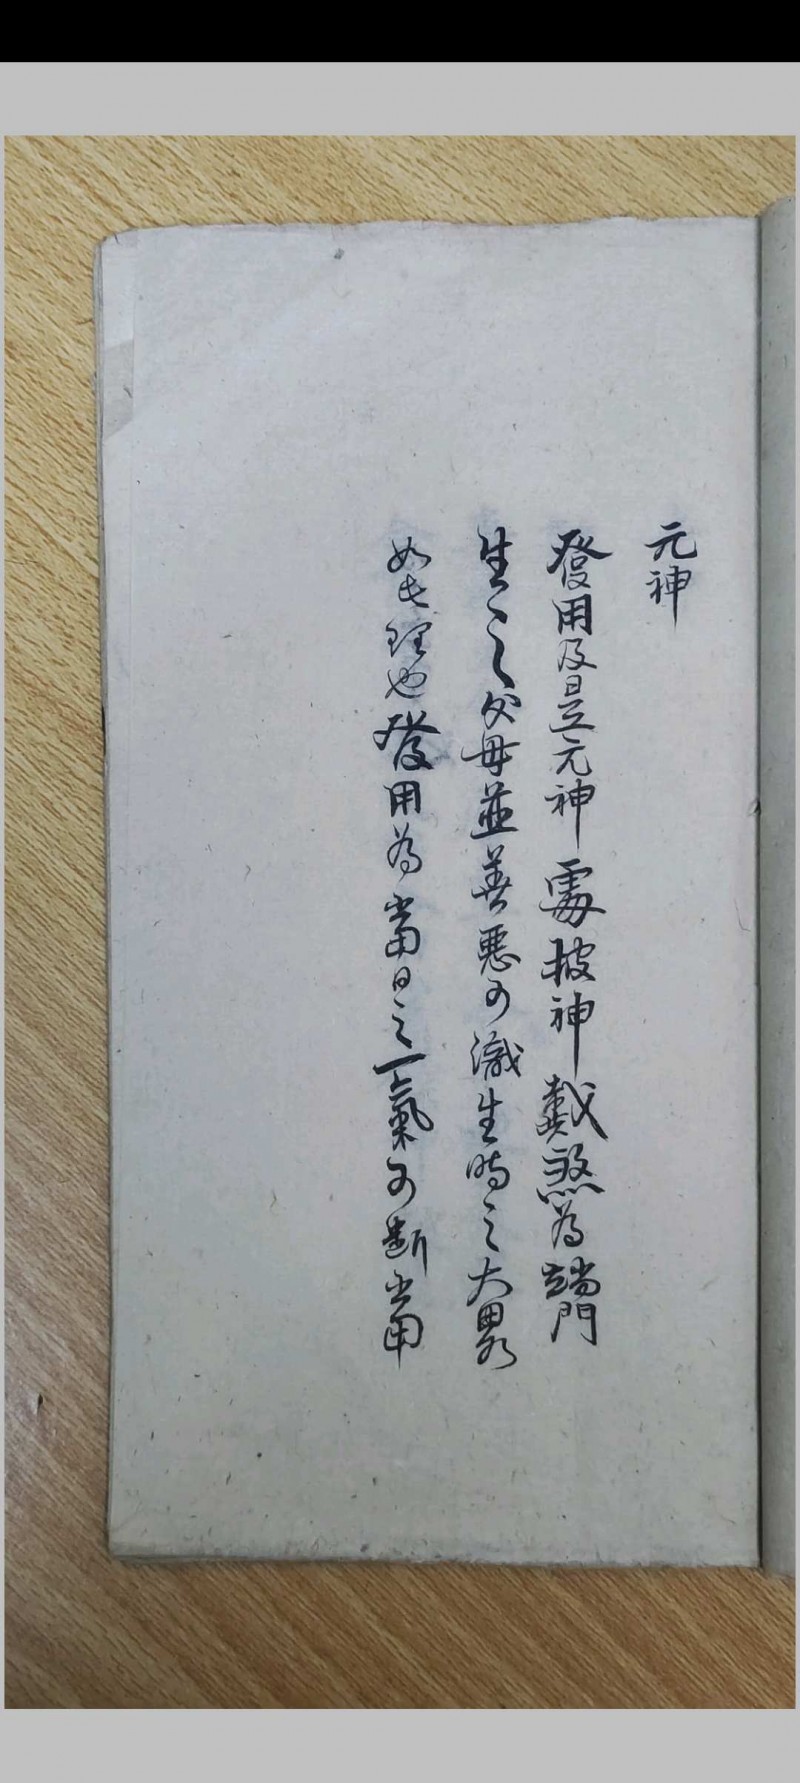 元神
發用及是元神處披神戴煞為端門
生生之父母並善惡可識生時之大畧
如此理也發用為當日之一氣可斷當